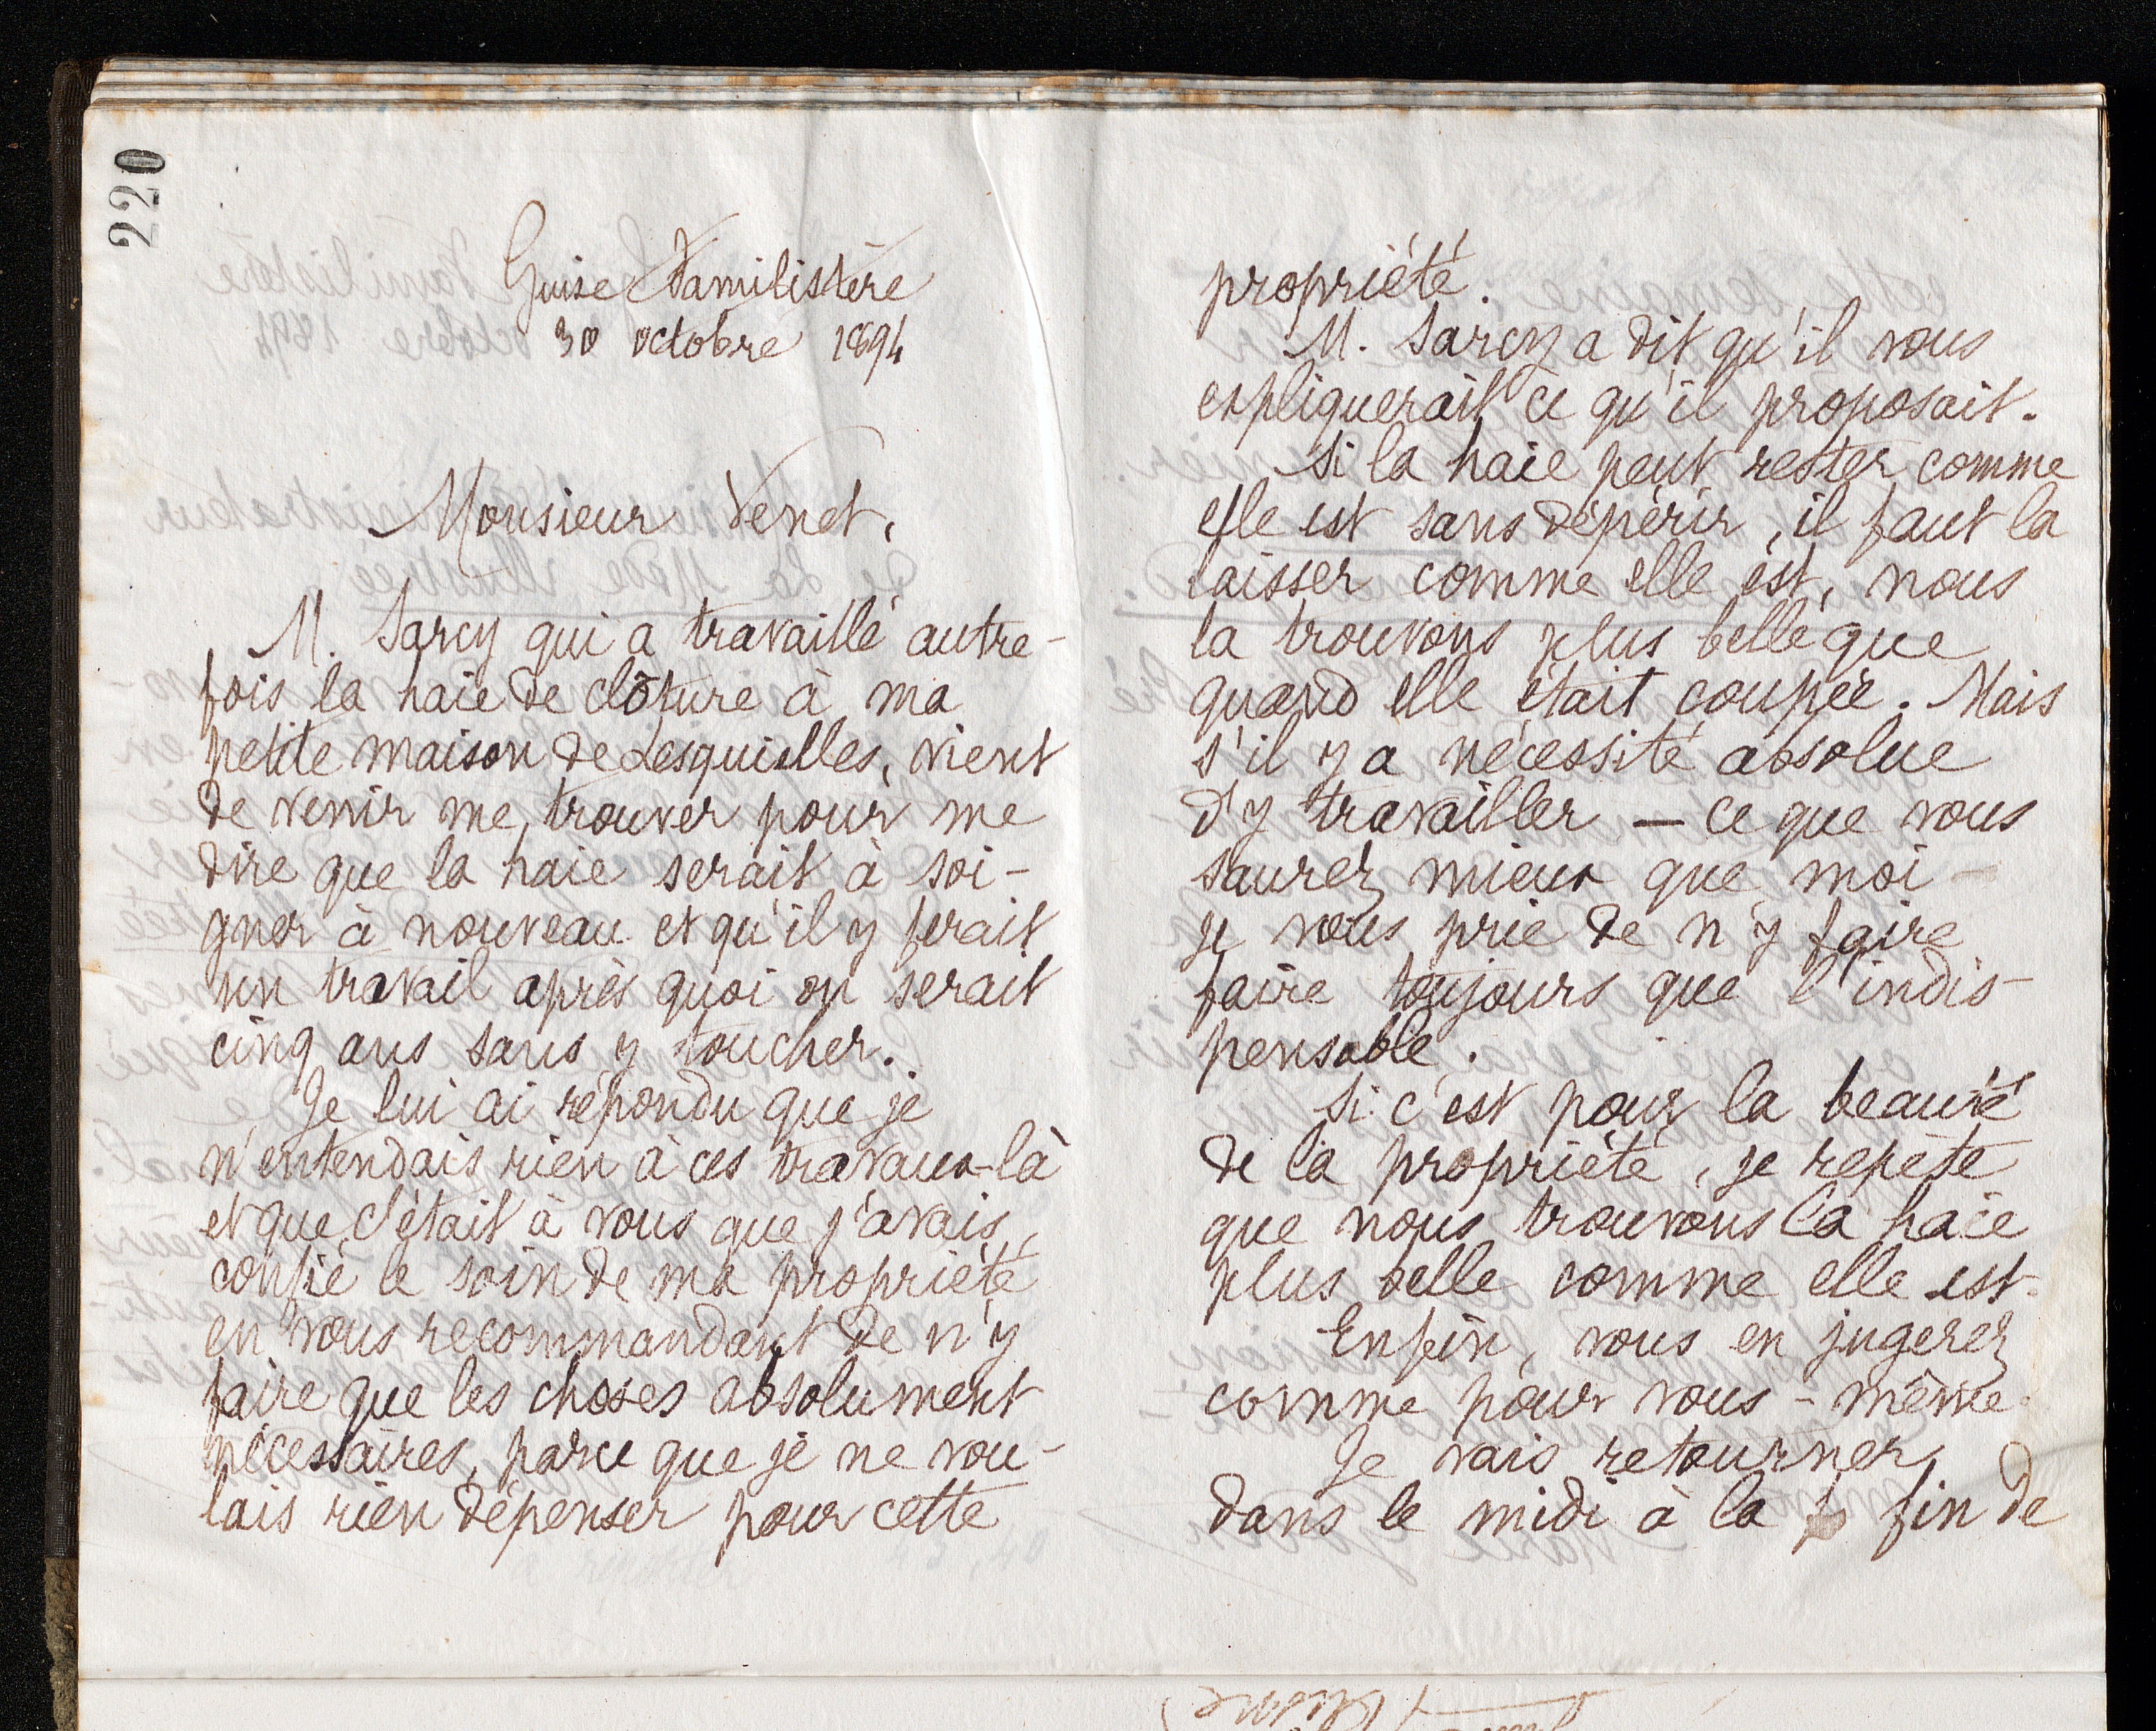 220
Guise Familistère
30 octobre 1894
Monsieur Venet,
M. Sarcy qui a travaillé autre-
fois la haie de clôture à ma
petite maison de Lesquielles, vient
de venir me trouver pour me
dire que la haie serait à soi-
gner à nouveau et qu'il y ferait
un travail après quoi on serait
cinq ans sans y toucher.
Je lui ai répondu que je
n'entendais rien à ces travaux-là
et que c'était à vous que j'avais
confié le soin de ma propriété
en vous recommandant de n'y
faire que les choses absolument
nécessaires, parce que je ne vou-
lais rien dépenser pour cette
propriété.
M. Sarcy a dit qu'il vous
expliquerait ce qu'il proposait.
Si la haie peut rester comme
elle est sans dépérir, il faut la
laisser comme elle est, nous
la trouvons plus belle que
quand elle était coupée. Mais
s'il y a nécessité absolue
d'y travailler — ce que vous
saurez mieux que moi —
je vous prie de n'y faire
faire toujours que l'indis-
pensable.
Si c'est pour la beauté
de la propriété, je repète
que nous trouvons la haie
plus belle comme elle est.
Enfin, vous en jugerez
comme pour vous-même.
Je vais retourner
dans le midi à la fin de